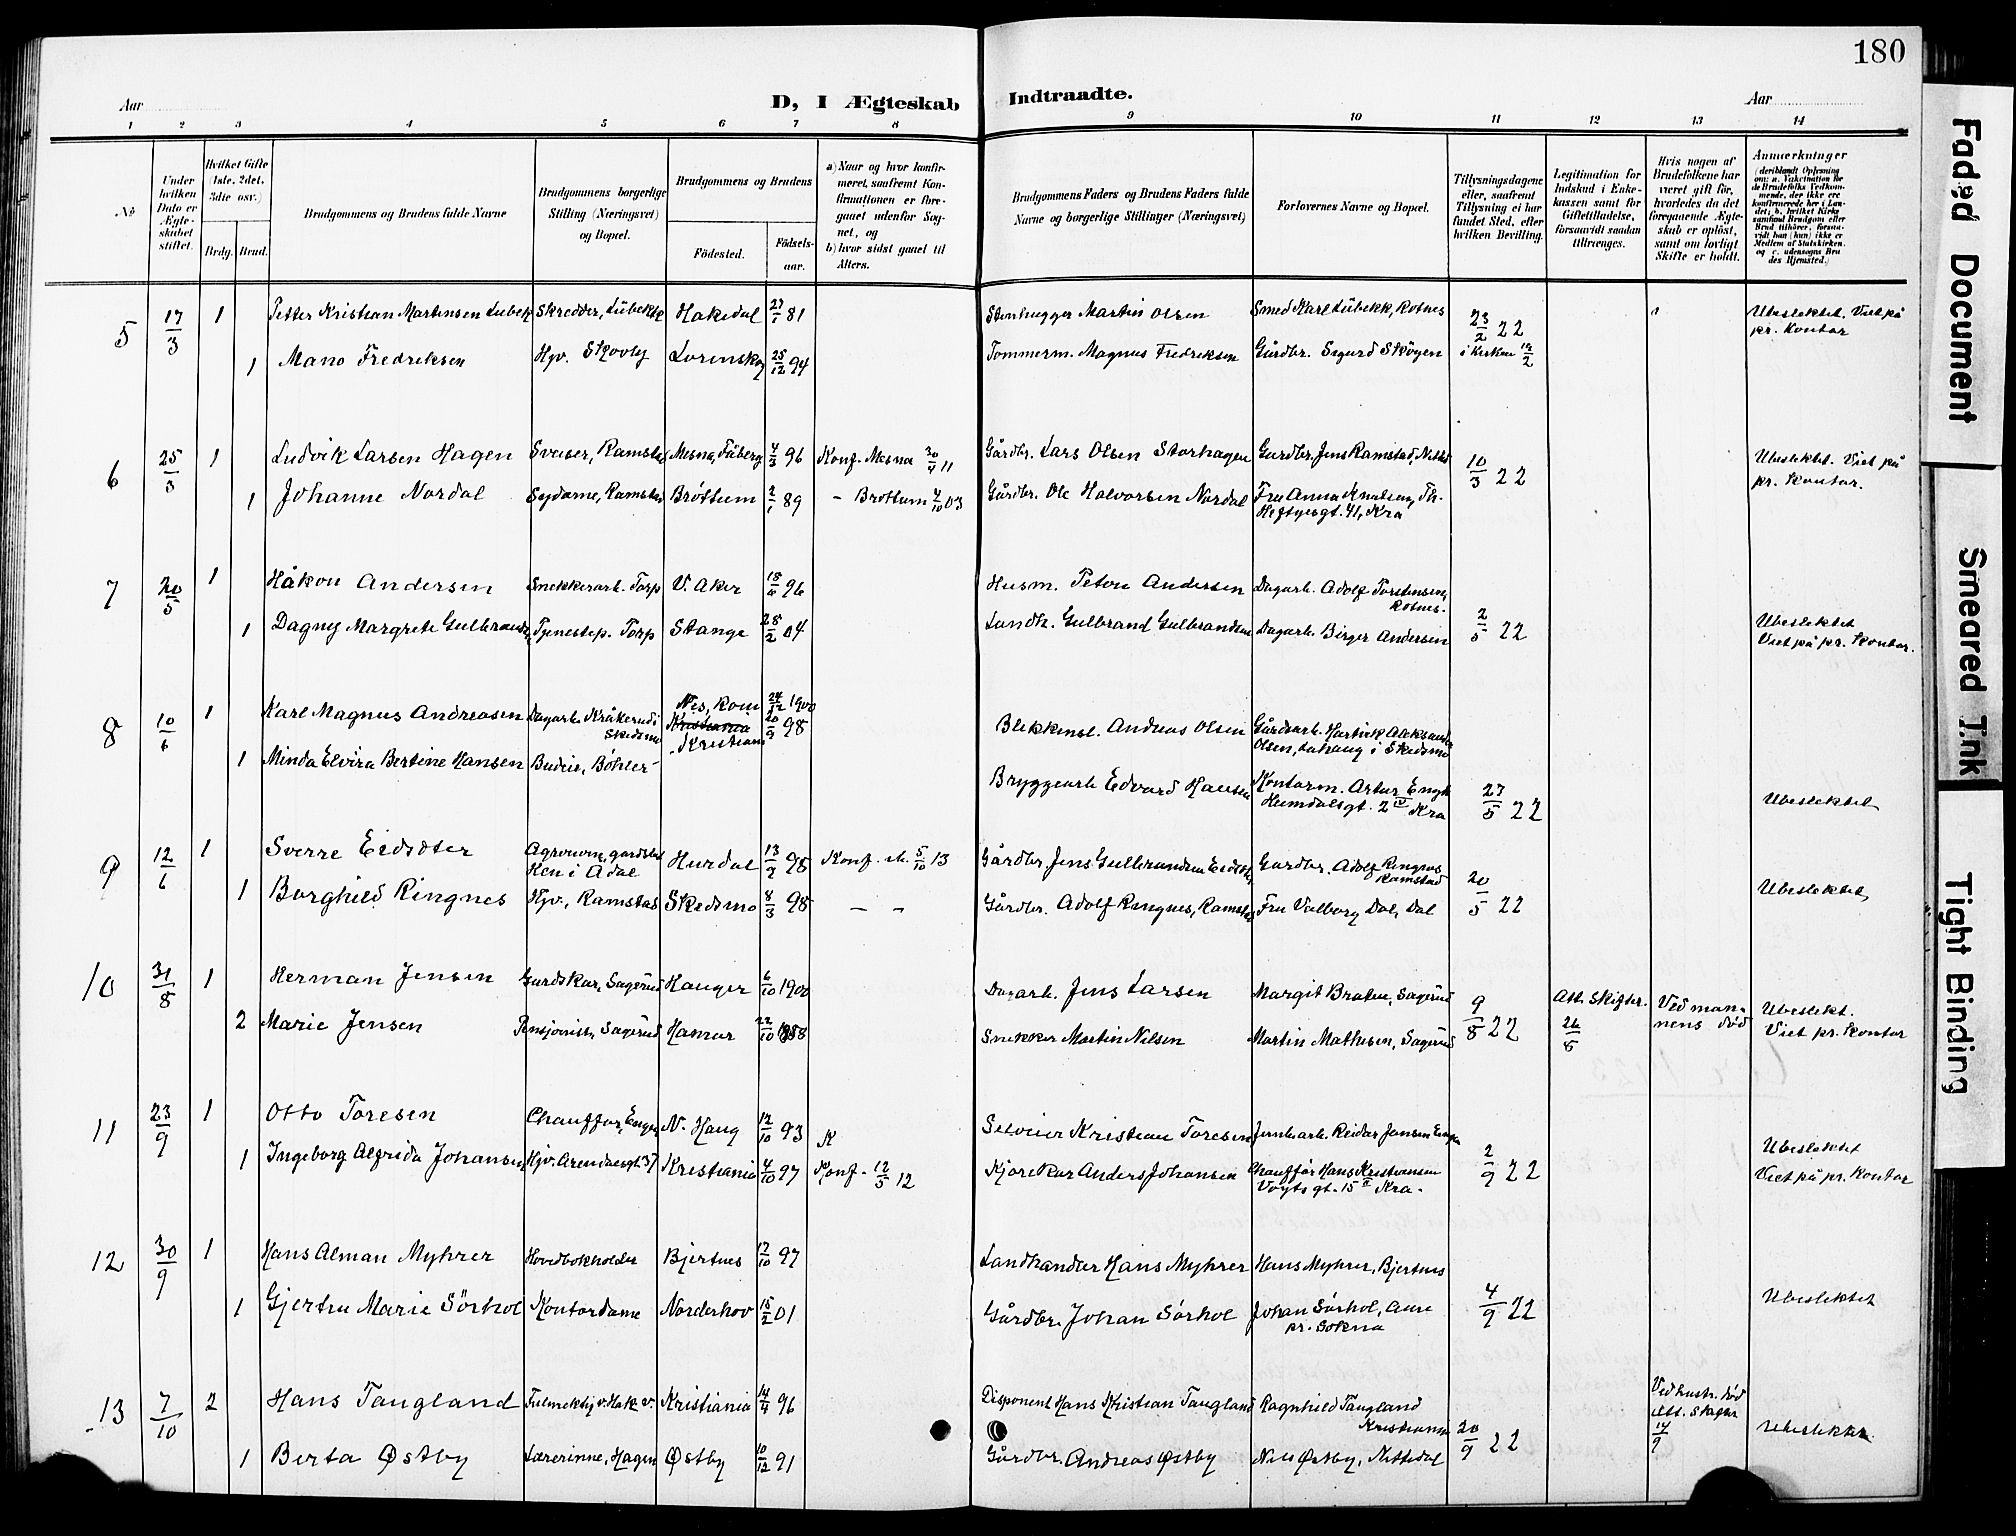 180
Aar
D, I Ægteskab
Indtraadte.
Aar
1 2 3 4 5 6 7 8 9 10 11 12 13 14
No
Under hvilken Dato er Ægteskabet stiftet.
Hvilket Gifte (1ste, 2det, 3die osv.)
Brdg. Brud.
Brudgommens og Brudens fulde Navne
Brudgommens borgerlige Stilling (Næringsvei) og Bopæl.
Brudgommens og Brudens
Födested.
Födselsaar.
a) Naar og hvor konfirmeret, saafremt Konfirmationen er foregaaet udenfor Sognet, og
b) hvor sidst gaaet til Alters.
Brudgommens Faders og Brudens Faders fulde Navne og borgerlige Stillinger (Næringsvei)
Forlovernes Navne og Bopæl.
Tillysningsdagene eller, saafremt Tillysning ei har fundet Sted, efter hvilken Bevilling.
Legitimation for Indskud i Enkekassen samt for Giftetilladelse, forsaavidt saadan tiltrænges.
Hvis nogen af Brudefolkene har været gift för, hvorledes da det foregaaende Ægteskab er oplöst, samt om lovligt Skifte er holdt.
Anmerkninger (deriblandt Oplysning om: a. Vakcination for de Brudefolks Vedkommende, der ikke ere konfirmerede her i Landet; b. hvilket Kirkesamfund Brudgom eller Brud tilhører, forsaavidt han (hun) ikke er Medlem af Statskirken, og c. udensogns Brudes Hjemsted.)
5 17/3 1 Petter Kristian Martinsen Lübek Skredder, Lübekk Hakedal 27/1 81 Stenhugger Martin Olsen Smed Karl Lübekk, Rotnes 23/2 22 Ubeslektet. Viet på pr. Kontor
1 Mano Fredriksen Hjv. Skovly Lorinskog 25/12 94 Tommerm. Magnus Fredriksen Gårdbr. Sigurd Skøyen i Kirken 19/2
6 25/3 1 Ludvik Larsen Hagen Sveiser, Ramstad Mesna, Fåberg 4/3 96 Konf. Mesna 30/4 11 Gårdbr. Lars Olsen Storhagen Gardbr. Jens Ramstad, Nitted 10/3 22 Ubeslektet. Viet på pr. Kontor.
1 Johanne Nordal Sydame, Ramstad Brøttum 2/1 89 - Brøttum 4/10 03 Gårdbr. Ole Halvorsen Nordal Fru Anna Knutsen, Th. Heftyesgt. 41, Kra
7 20/5 1 Håkon Andersen Snekkerarb. Torp V. Aker 18/6 96 Husm. Peton Andersen Dagarb. Adolf Torstensen, Rotnes.
1 Dagny Margrete Gulbrands. Tjenestep. Torp Stange 28/2 04 Landh. Gulbrand Gulbrandsen Dagarb. Birger Andersen 2/5 22 Ubeslektet Viet på pr. Kontor.
8 10/6 1 Karl Magnus Andreasen Dagarb. Kråkerud i Skedsmo Nes, Rom 24/12 1900 Blikkensl. Andreas Olsen Gårdsarb. Hartvik Aleksander Olsen, Lahaug i Skedsmo
1 Minda Elvira Bertine Hansen Budeie, Bøhler Kristiania Kristiania 20/9 98 Bryggearb. Edvard Hansen Kontorm. Artur Engh Heimdalsgt. 2 IV Kra 27/5 22 Ubeslektet
9 12/6 1 Sverre Eidsder Agronom, gardsbst Ken i Ådal Hurdal 13/9 98 Konf. 5/10 13 Gårdbr. Jens Gulbrandsen Gardbr. Adolf Ringnes Ramstad 20/5 22 Ubeslektet,
1 Borghild Ringnes Hjv., Ramstad Skedsmo 8/3 98 - " - Gårdbr. Adolf Ringnes, Ramstad Fru Valborg Dal, Dal
10 31/8 1 Herman Jensen Gardskar, Sagerud Hauger 6/10 1900 Dagarb. Jens Larsen Margit Braten, Sagerud 9/8 22 Att. Skifter. 26/8 Ved mannens död Ubeslekt. Viet pr. Kontor
2 Marie Jensen Pensjonist, Sagerud Hamar 22/10 1888 Snekker Martin Nilsen Martin Mathisen, Sagerud
11 23/9 1 Otto Toresen Chauffør, Enger N. Haug 12/10 93 K Selveier Kristian Toresen Jernbarb. Reidar Jensen 2/9 22 Ubeslektet
1 Ingeborg Alfrida Johansen Hjv. Arendalsgt. 37 Kristiania 4/10 97 Konf. 12/5 12 Kjørekar Anders Johansen Chauffør Hans Kristiansen Voytsgt. 15 II Kra. Viet på pr. Kontor
12 30/9 1 Hans Alman Myhrer Hovedbokholder Bjertnes 17/10 97 Landhandler Hans Myhrer Hans Myhrer, Bjertnes
1 Gjertru Marie Sörhol Kontordame Norderhov 15/2 01 Gårdbr. Johan Sörhol Johan Sörhol, Aure pr. Sokna 4/9 22 Ubeslektet
13 7/10 2 Hans Taugland Fulmektig v. Hak. v. Kristiania 14/4 96 Disponent Hans Kristian Taugland Ragnhild Taugland Kristiania 20/9 22 Ved hustr. död Att. Skifter 14/9 Ubeslektet
1 Berta Østby Lærerinne, Hagen Østby 10/12 91 Gårdbr. Andreas Østby Nils Østby, Nittedal
Faded Document
Smeared Ink
Tight Binding